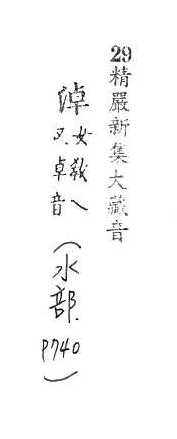 29精嚴新集大藏音
淖 女教乀
又卓音
(水部. P740)